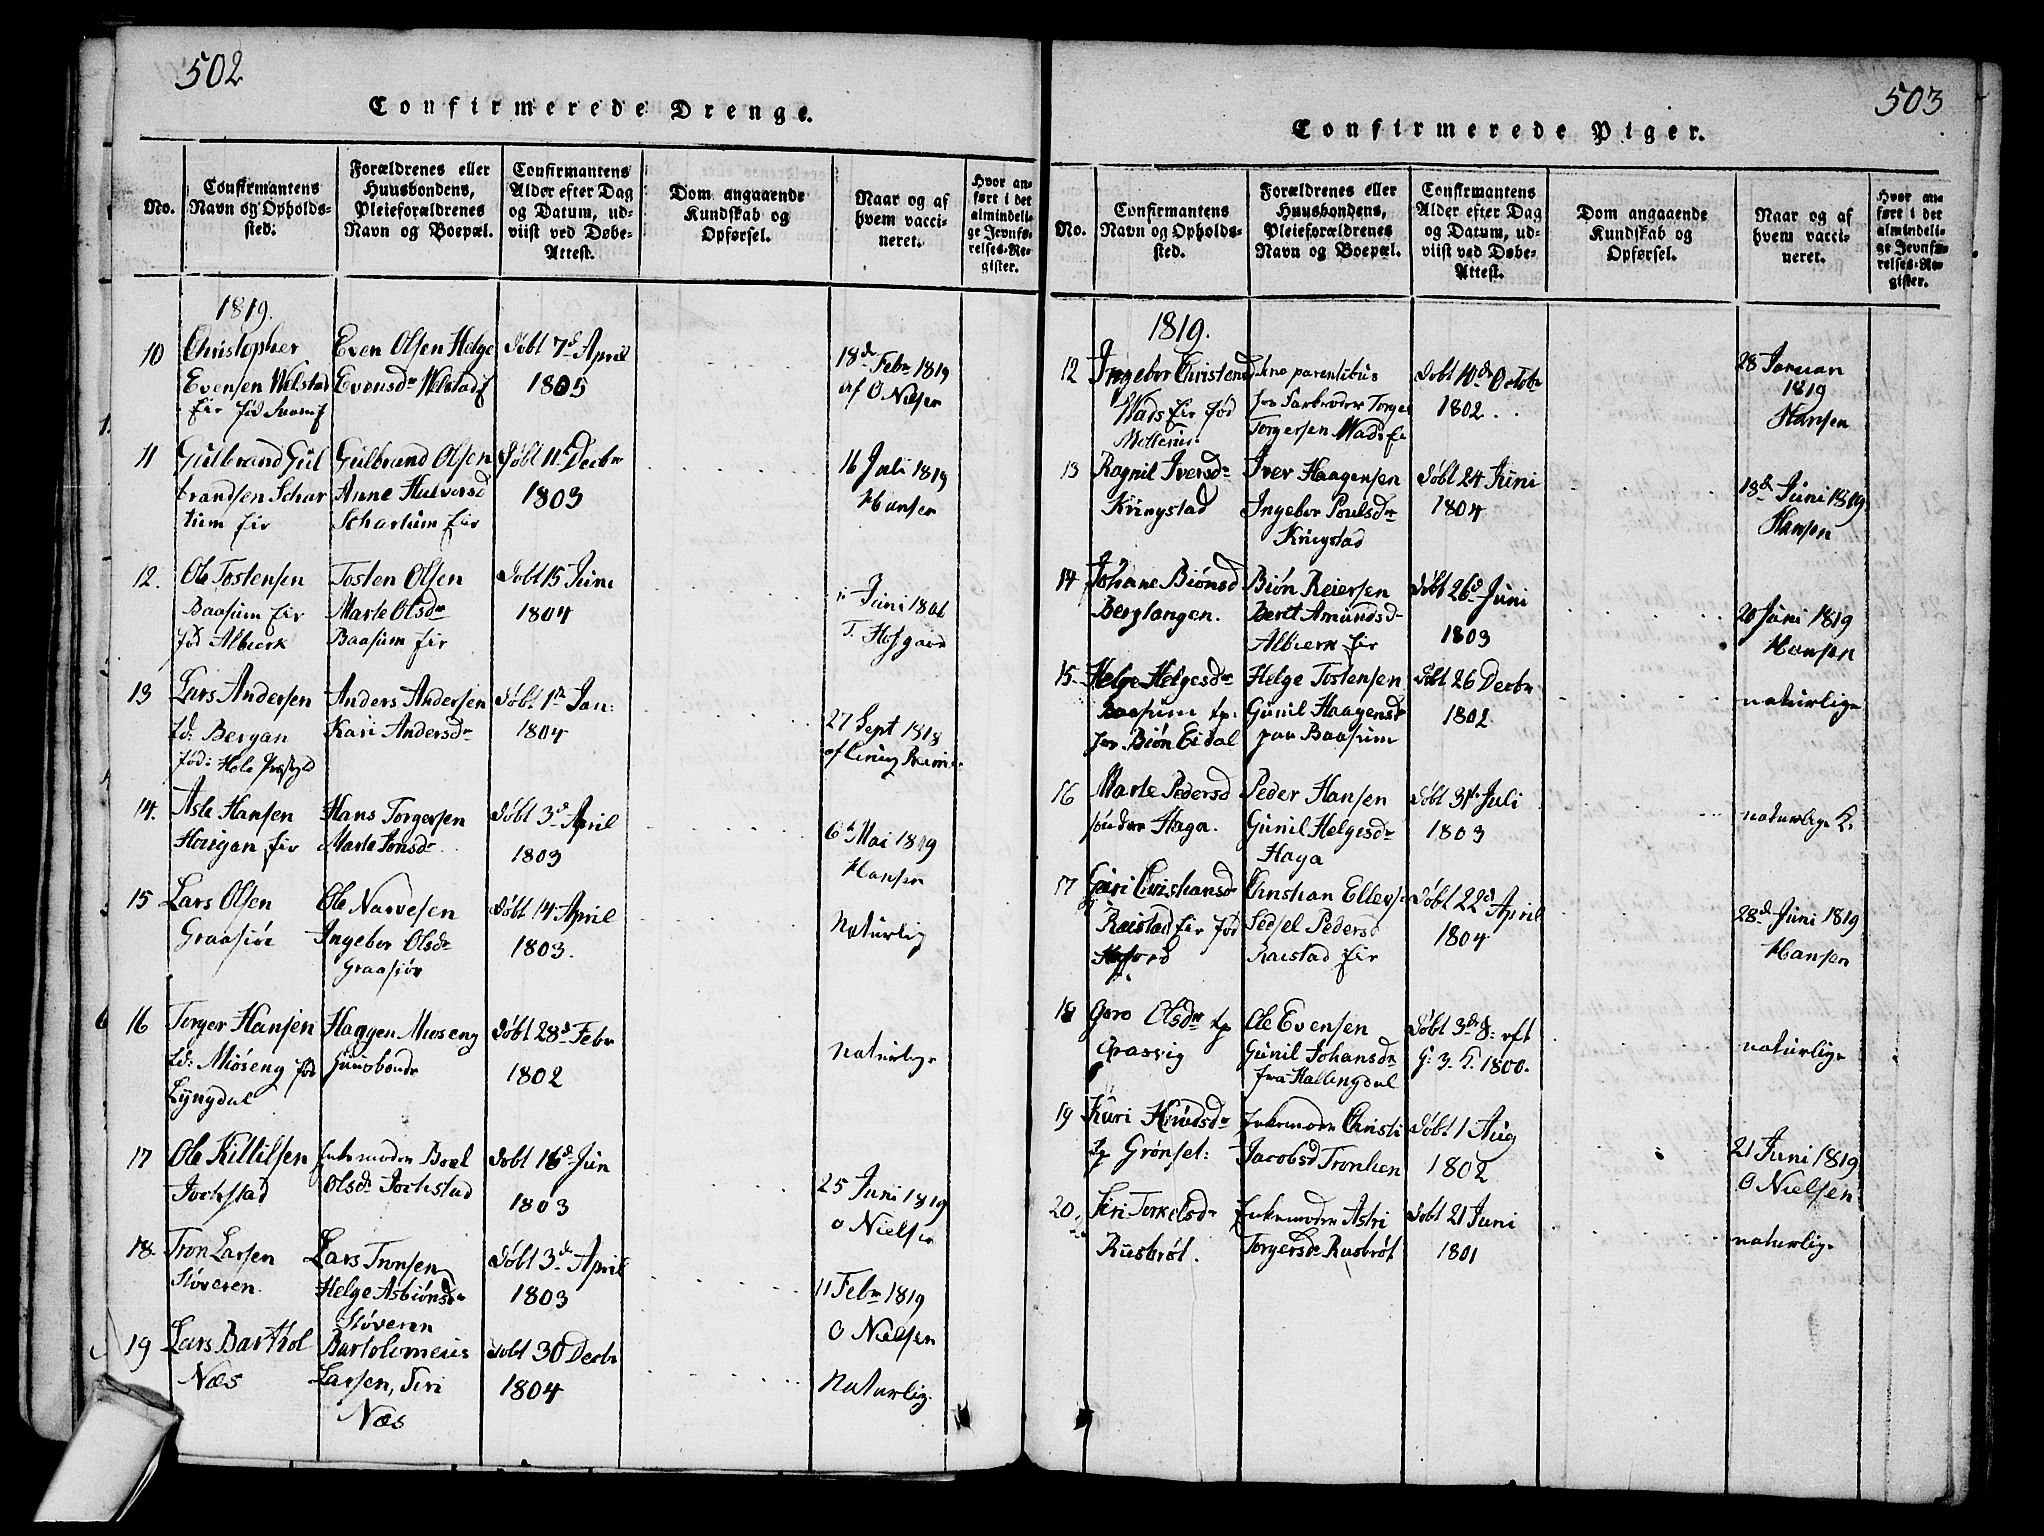 502
Confirmerede Drenge.
No.
Confirmantens
Navn og Opholds-
sted.
Forældrenes eller
Huusbondens,
Pleieforældrenes
Navn og Boepæl.
Confirmantens
Alder efter Dag
og Datum, ud-
viist ved Døbe-
Attest.
Dom angaaende
Kundskab og
Opførsel.
Naar og af
hvem vacci-
neret.
Hvor an-
ført i det
almindeli-
ge Jevnfø-
relses-Re-
gister.
1819.
10
Christopher
Evensen Welstad
Even Olsen Helge
Evensdr Welstad
Døbt 7d April
1805
18de Febr 1819
af O Nielsen
11
Gulbrand Gul
brandsen Schar
tum
Gulbrand Olsen
Anne Halvorsd
Schartum
Døbt 11t Decbr
1803
16 Juli 1819
Hansen
12.
Ole Tostensen
Baasum
fød Albierk
Tosten Olsen
Marte Olsdr
Baasum
Døbt 15 Juni
1804
11 Juni 1801
T. Hofgaard
13
Lars Andersen
Bergan
fød: Hole
Anders Andersen
Kari Andersdr
Døbt 1te Jan:
1804
27 Sept 1818
14.
Asle Hansen
Horigan
Hans Torgersen
Marte Jonsdr
Døbt 3d April
1803
6te Mai 1819
Hansen
15
Lars Olsen
Graasiør
Ole Narvesen
Ingebor Olsdr
Graasiør
Døbt 14 April
1803.
Naturlig
16
Torger Hansen
Miøseng fød
Lyngdal
Haagen Mioseng
Huusbonde
Døbt 28d Febr
1802
naturlige
17
Ole Killilsen
Jochstad
Enkemoder Boel
Olsdr Jochstad
Døbt 16d Jun
1803
25 Juni 1819
O Nielsen
18
Tron Larsen
Støveren
Lars Tronsen
Helge Asbiønsdr
Støveren
Døbt 3de April
1803
11 Febr 1819
O Nielsen
19
Lars Barthol
Næs
Bartolomeus
Larsen, Siri
Næs
Døbt 30 Decbr
1804
Naturlig
503
Confirmerede Piger.
No.
Confirmantens
Navn og Opholds-
sted.
Forældrenes eller
Huusbondens,
Pleieforældrenes
Navn og Boepæl.
Confirmantens
Alder efter Dag
og Datum, ud-
viist ved Døbe-
Attest.
Dom angaaende
Kundskab og
Opførsel.
Naar og af
hvem vacci-
neret.
Hvor an-
ført i det
almindeli-
ge Jevnfø-
relses-Re-
gister.
1819.
12
Ingebor Christensd
Wads fød
sine parentibus
for Farbroder Torger
Torgersen Wads
Døbt 10de Octobr
1802.
28 Januari
1819
Hansen
13
Ragnil Iversdr
Kringstad
Iver Haagensen
Ingebor Poulsdr
Kringstad
Døbt 24 Juni
1804
18d Juni 1819
Hansen
14
Johane Biønsd
Berglangen.
Biøn Reiersen
Berit Amundsd
Albierk
Døbt 26d Juni
1803
20 Juni 1819
Hansen
15.
Helge Helgesdr
Baasum tp.
for Biøn Eidal
Helge Tostensen
Gunil Haagensdr
paa Baasum
Døbt 26 Decbr
1802
naturlige
16
Marte Pedersd
søndre Haga.
Peder Hansen
Gunil Helgesdr
Haga
Døbt 31t Juli
1803
naturlige K.
17
Guri Christiansdr
Raistad fød
Christian Ellevs
Sedsel Pedersd
Raistad
Døbt 22d April
1804
28d Juni 1819
Hansen
18
Goro Olsdr tp
Ole Evensen
Gunil Johansdr
fra Hallingdal
Døbt 3de S: eft
H: 3. K. 1800.
naturlige
19
Kari Knudsdr
tp Grønset:
Enkemoder Christi
Jacobsd Tronhen
Døbt 1 Aug
1802
21 Juni 1819
O Nielsen
20
Siri Torkelsdr
Rusbrøt.
Enkemoder Astri
Torgersdr Rusbrøt
Døbt 21 Juni
1801
naturlige